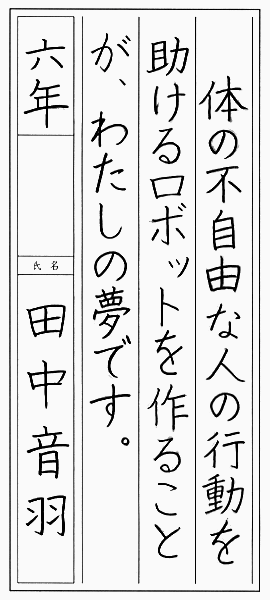 体の不自由な人の行動を
助けるロボットを作ること
が、わたしの夢です。
六年
氏名
田中音羽